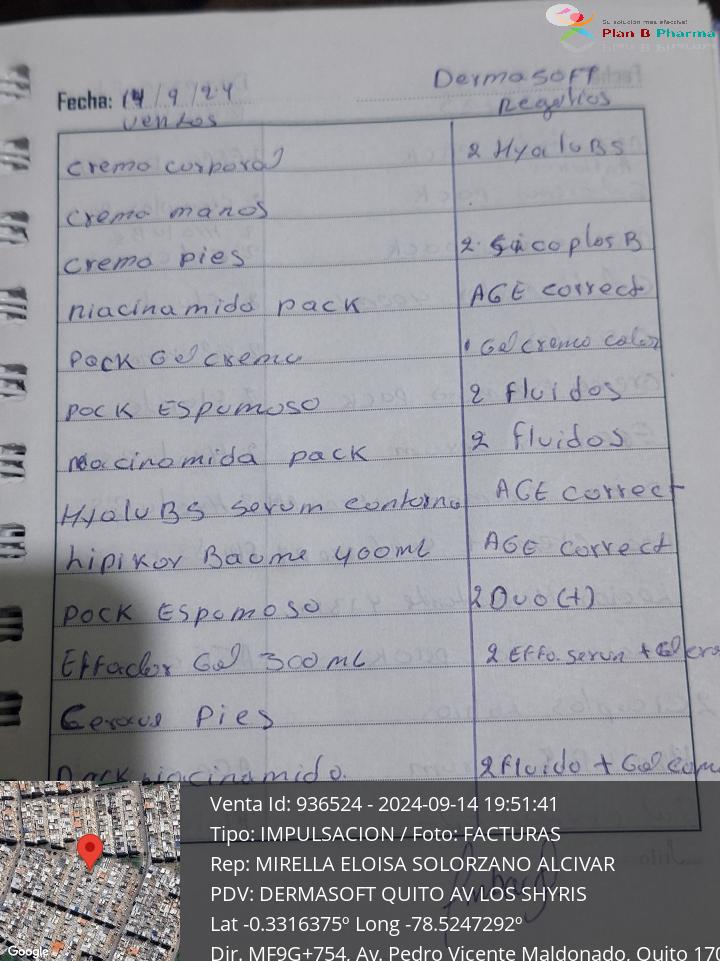 Su solucion mas efectiva!
Plan B Pharma
Dermasoft
Fecha: 14/9/24
Regalios
ventas
crema corporal 2 Hyalu B5
crema manos
crema pies 2. Cicaplas B
niacinamida pack AGE correct
Pack Gel crema 1 Gel crema color
Pack Espumoso 2 fluidos
niacinamida pack 2 fluidos
Hyalu B5 serum contorno AGE correct
Lipikar Baume 400ml AGE correct
Pack Espumoso 2 Duo (+)
Effaclar Gel 300 ml 2 Effa. serum + Gel
Cerave Pies
Pack niacinamida. 2 fluido + Gel
Venta Id: 936524 - 2024-09-14 19:51:41
Tipo: IMPULSACION / Foto: FACTURAS
Rep: MIRELLA ELOISA SOLORZANO ALCIVAR
PDV: DERMASOFT QUITO AV LOS SHYRIS
Lat -0.3316375º Long -78.5247292º
Dir. MF9G+754, Av. Pedro Vicente Maldonado, Quito 170
Google